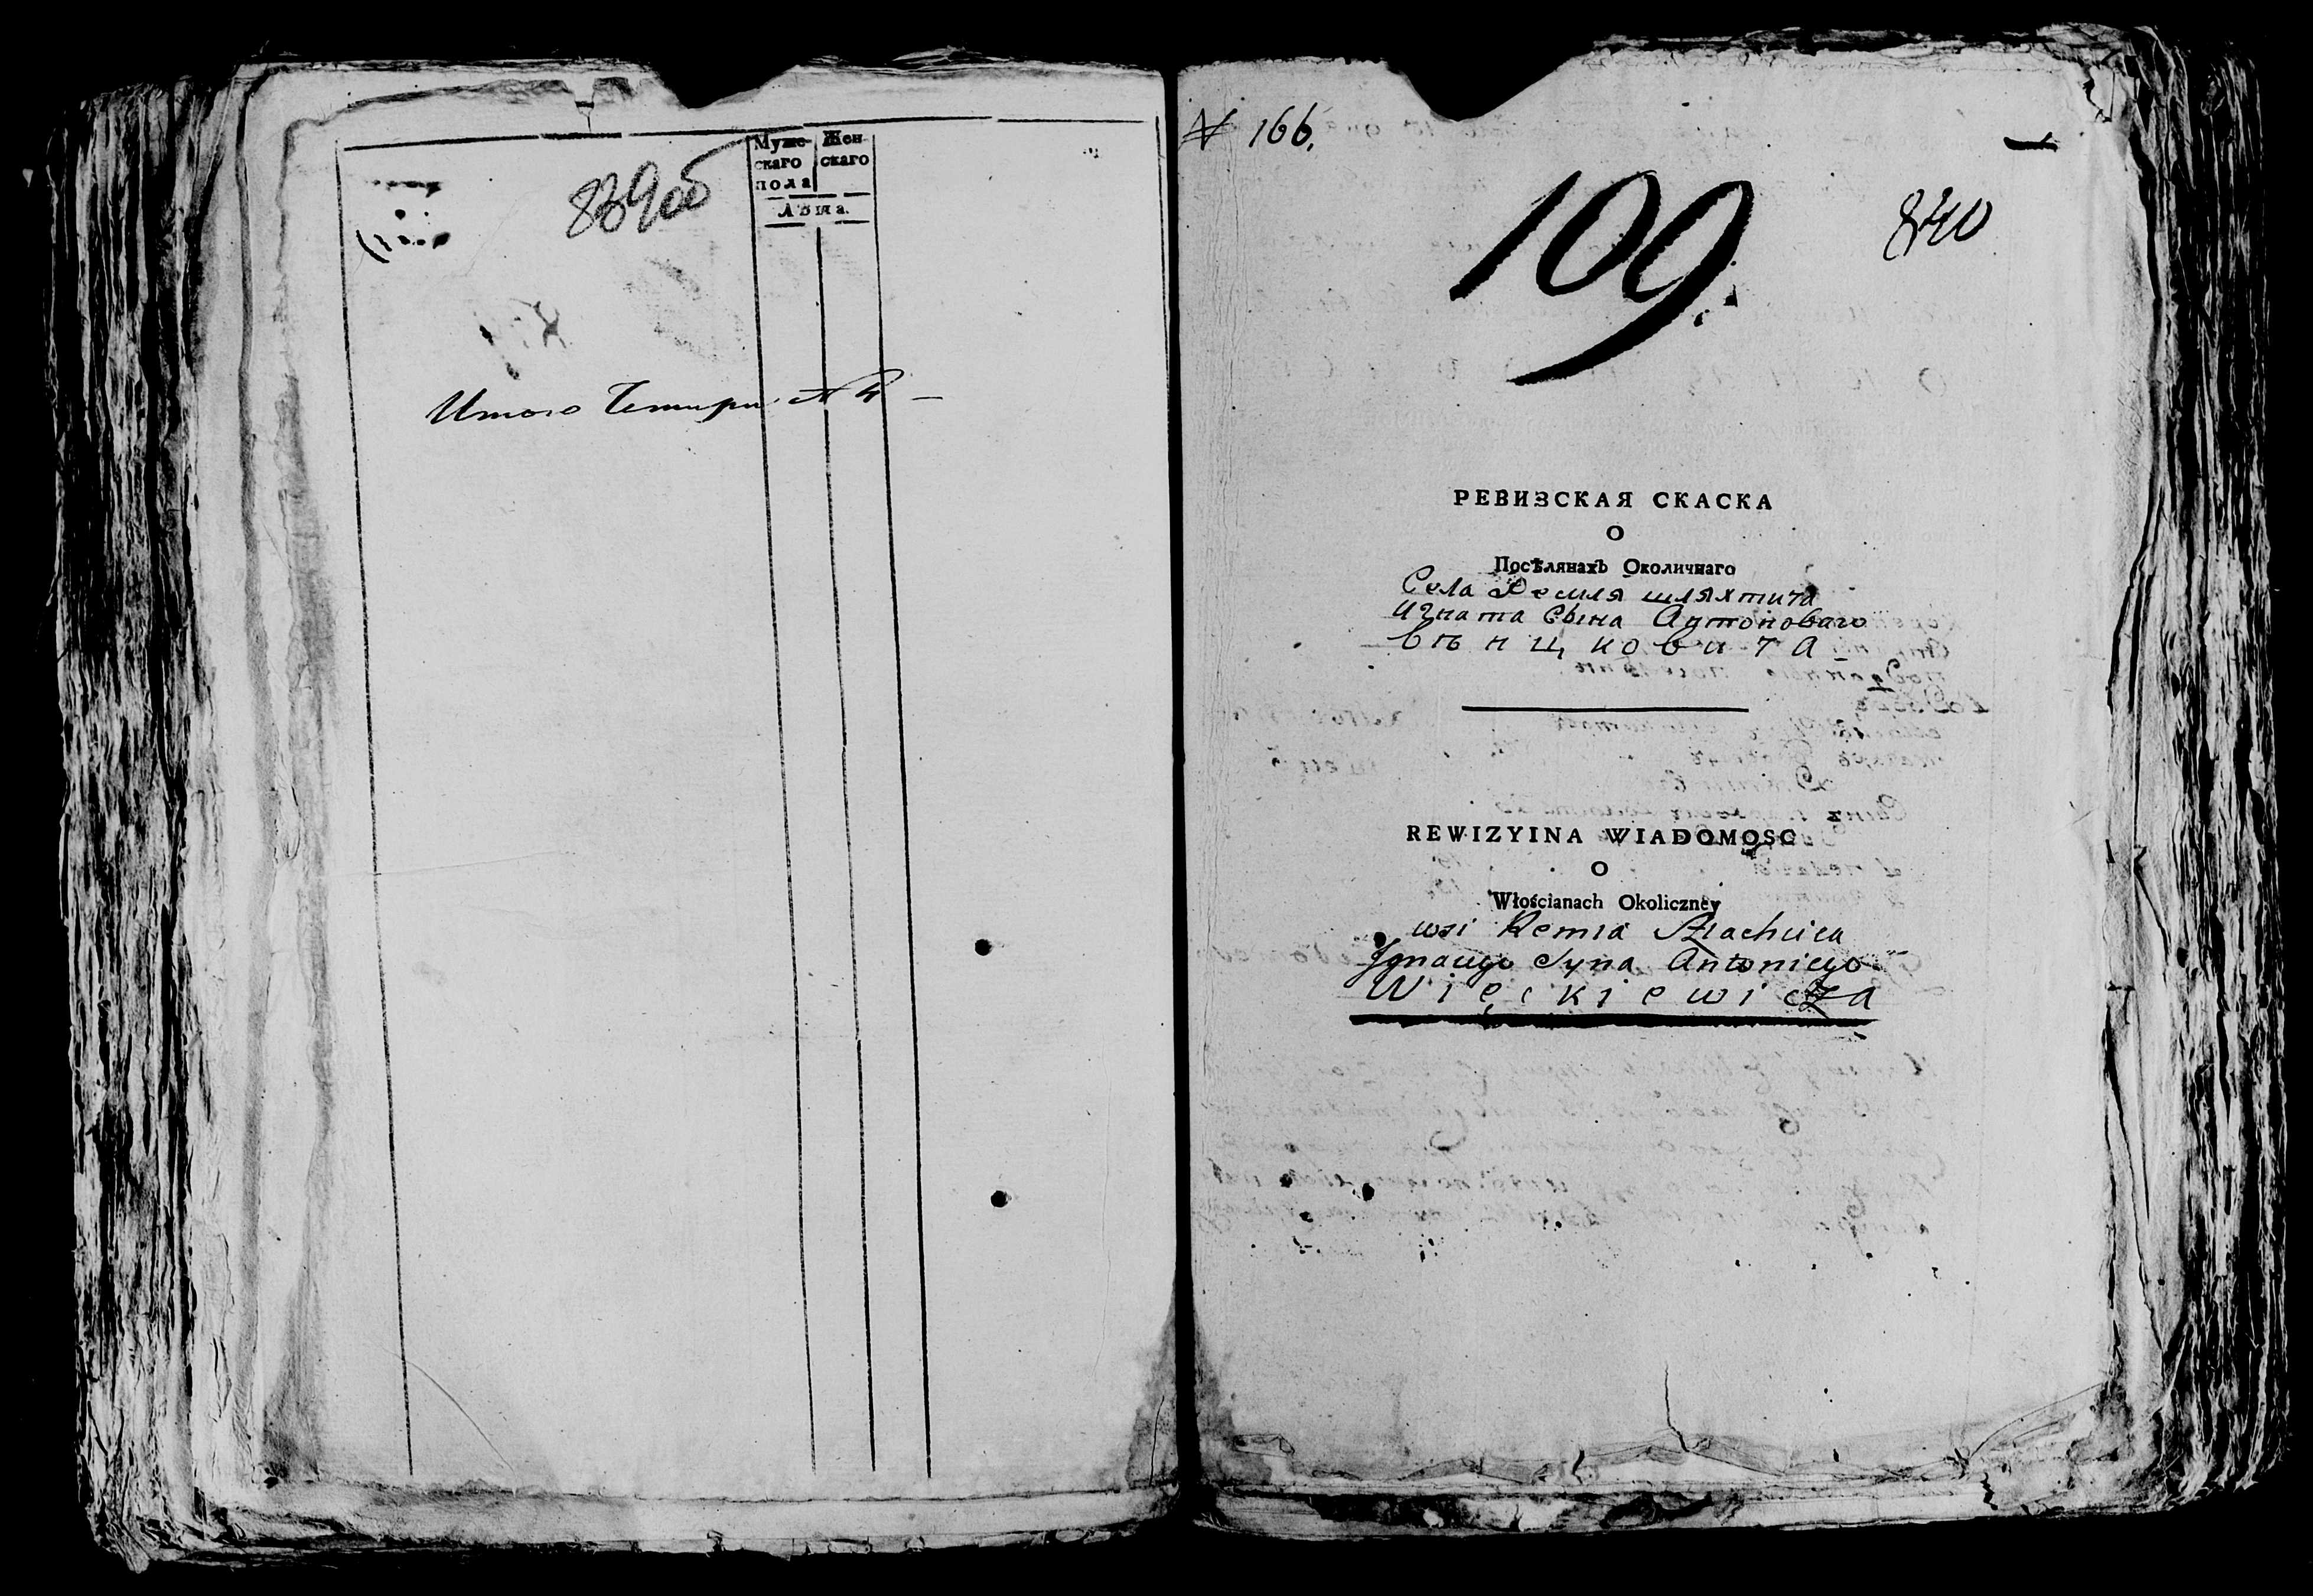 839об
Муже-
скаго
пола
Жен-
скаго
Лѣта.
Итого Четыри № 4 —
№ 166.
109.
840
РЕВИЗСКАЯ СКАСКА
О
Посѣлянахъ Околичнаго
Села Ремля шляхтича
Игната Сына Антоноваго
Вѣнцковича
REWIZYINA WIADOMOSC
O
Włościanach Okoliczney
wsi Remla Szlachcica
Ignacego Syna Antoniego
Więckiewicza